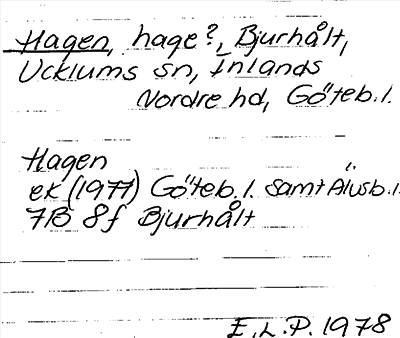 Hagen, hage?, Bjurhålt,
Ucklums sn, Inlands
Nordre hd, Göteb. l.
Hagen
ek (1977) Göteb. l. samt Älvsb. l.
7B 8f Bjurhålt
E.L.P. 1978